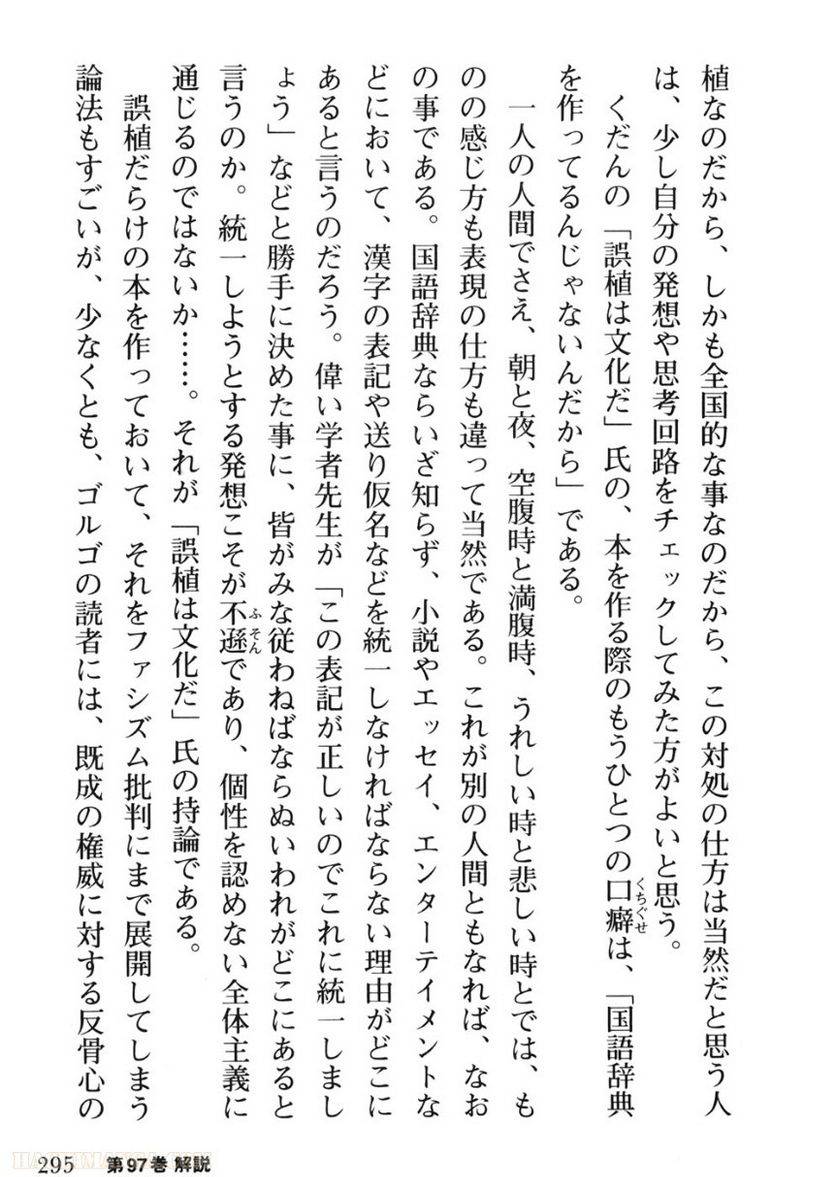 植なのだから、しかも全国的な事なのだから、この対処の仕方は当然だと思う人
は、少し自分の発想や思考回路をチェックしてみた方がよいと思う。
くだんの「誤植は文化だ」氏の、本を作る際のもうひとつの口癖は、「国語辞典
くちぐせ
を作ってるんじゃないんだから」である。
一人の人間でさえ、朝と夜、空腹時と満腹時、うれしい時と悲しい時とでは、も
のの感じ方も表現の仕方も違って当然である。これが別の人間ともなれば、なお
の事である。国語辞典ならいざ知らず、小説やエッセイ、エンターテイメントな
どにおいて、漢字の表記や送り仮名などを統一しなければならない理由がどこに
あると言うのだろう。偉い学者先生が「この表記が正しいのでこれに統一しまし
ょう」などと勝手に決めた事に、皆がみな従わねばならぬいわれがどこにあると
言うのか。統一しようとする発想こそが不遜であり、個性を認めない全体主義に
ふそん
通じるのではないか……。それが「誤植は文化だ」氏の持論である。
誤植だらけの本を作っておいて、それをファシズム批判にまで展開してしまう
論法もすごいが、少なくとも、ゴルゴの読者には、既成の権威に対する反骨心の
295 第97巻 解説